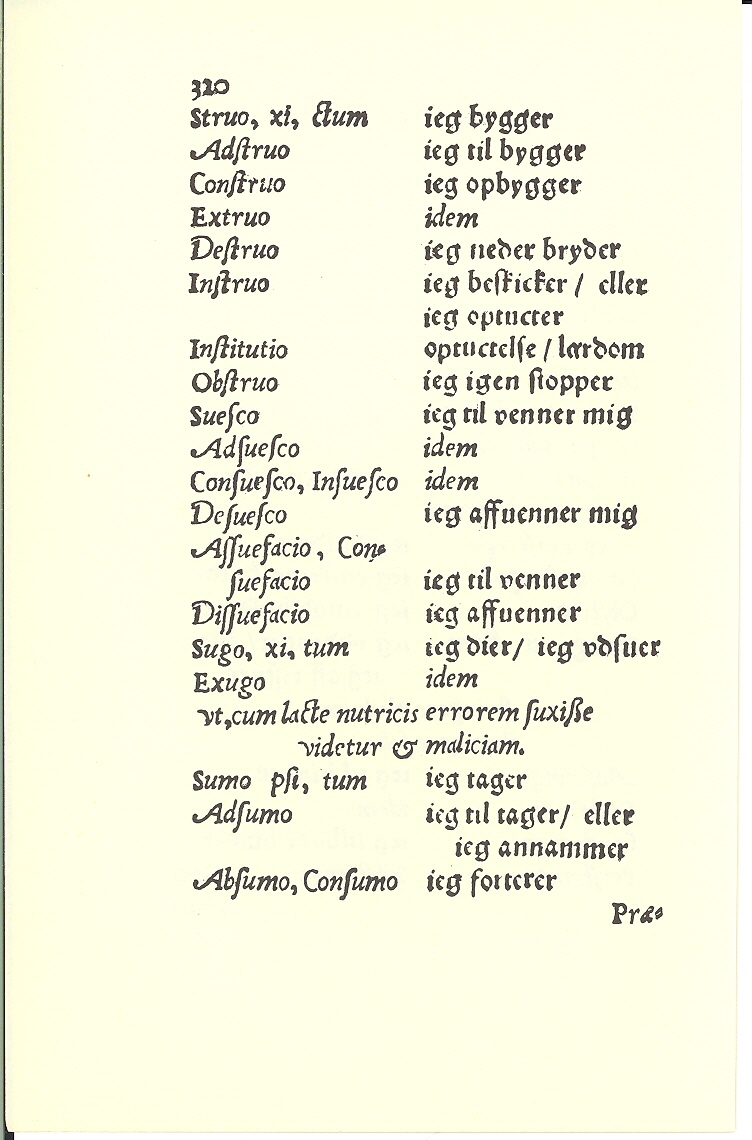 320
Struo, xi, ctum ieg bygger
Adſtruo ieg til bygger
Conſtruo ieg opbygger
Extruo idem
Deſtruo ieg neder bryder
Inſtruo ieg beſkicker / eller
ieg optucter
Inſtitutio optuctelſe / lærdom
Obſtruo ieg igen ſtopper
Sueſco ieg til venner mig
Adſueſco idem
Conſueſco, Inſueſco idem
Deſueſco ieg affuenner mig
Aſſuefacio, Con-
ſuefacio ieg til venner
Diſſuefacio ieg affuenner
Sugo, xi, tum ieg dier/ ieg vdſuer
Exugo idem
vt, cum lacte nutricis errorem ſuxiſſe
videtur & maliciam.
Sumo pſi, tum ieg tager
Adſumo ieg til tager/ eller
ieg annammer
Abſumo, Conſumo ieg forterer
Præ-